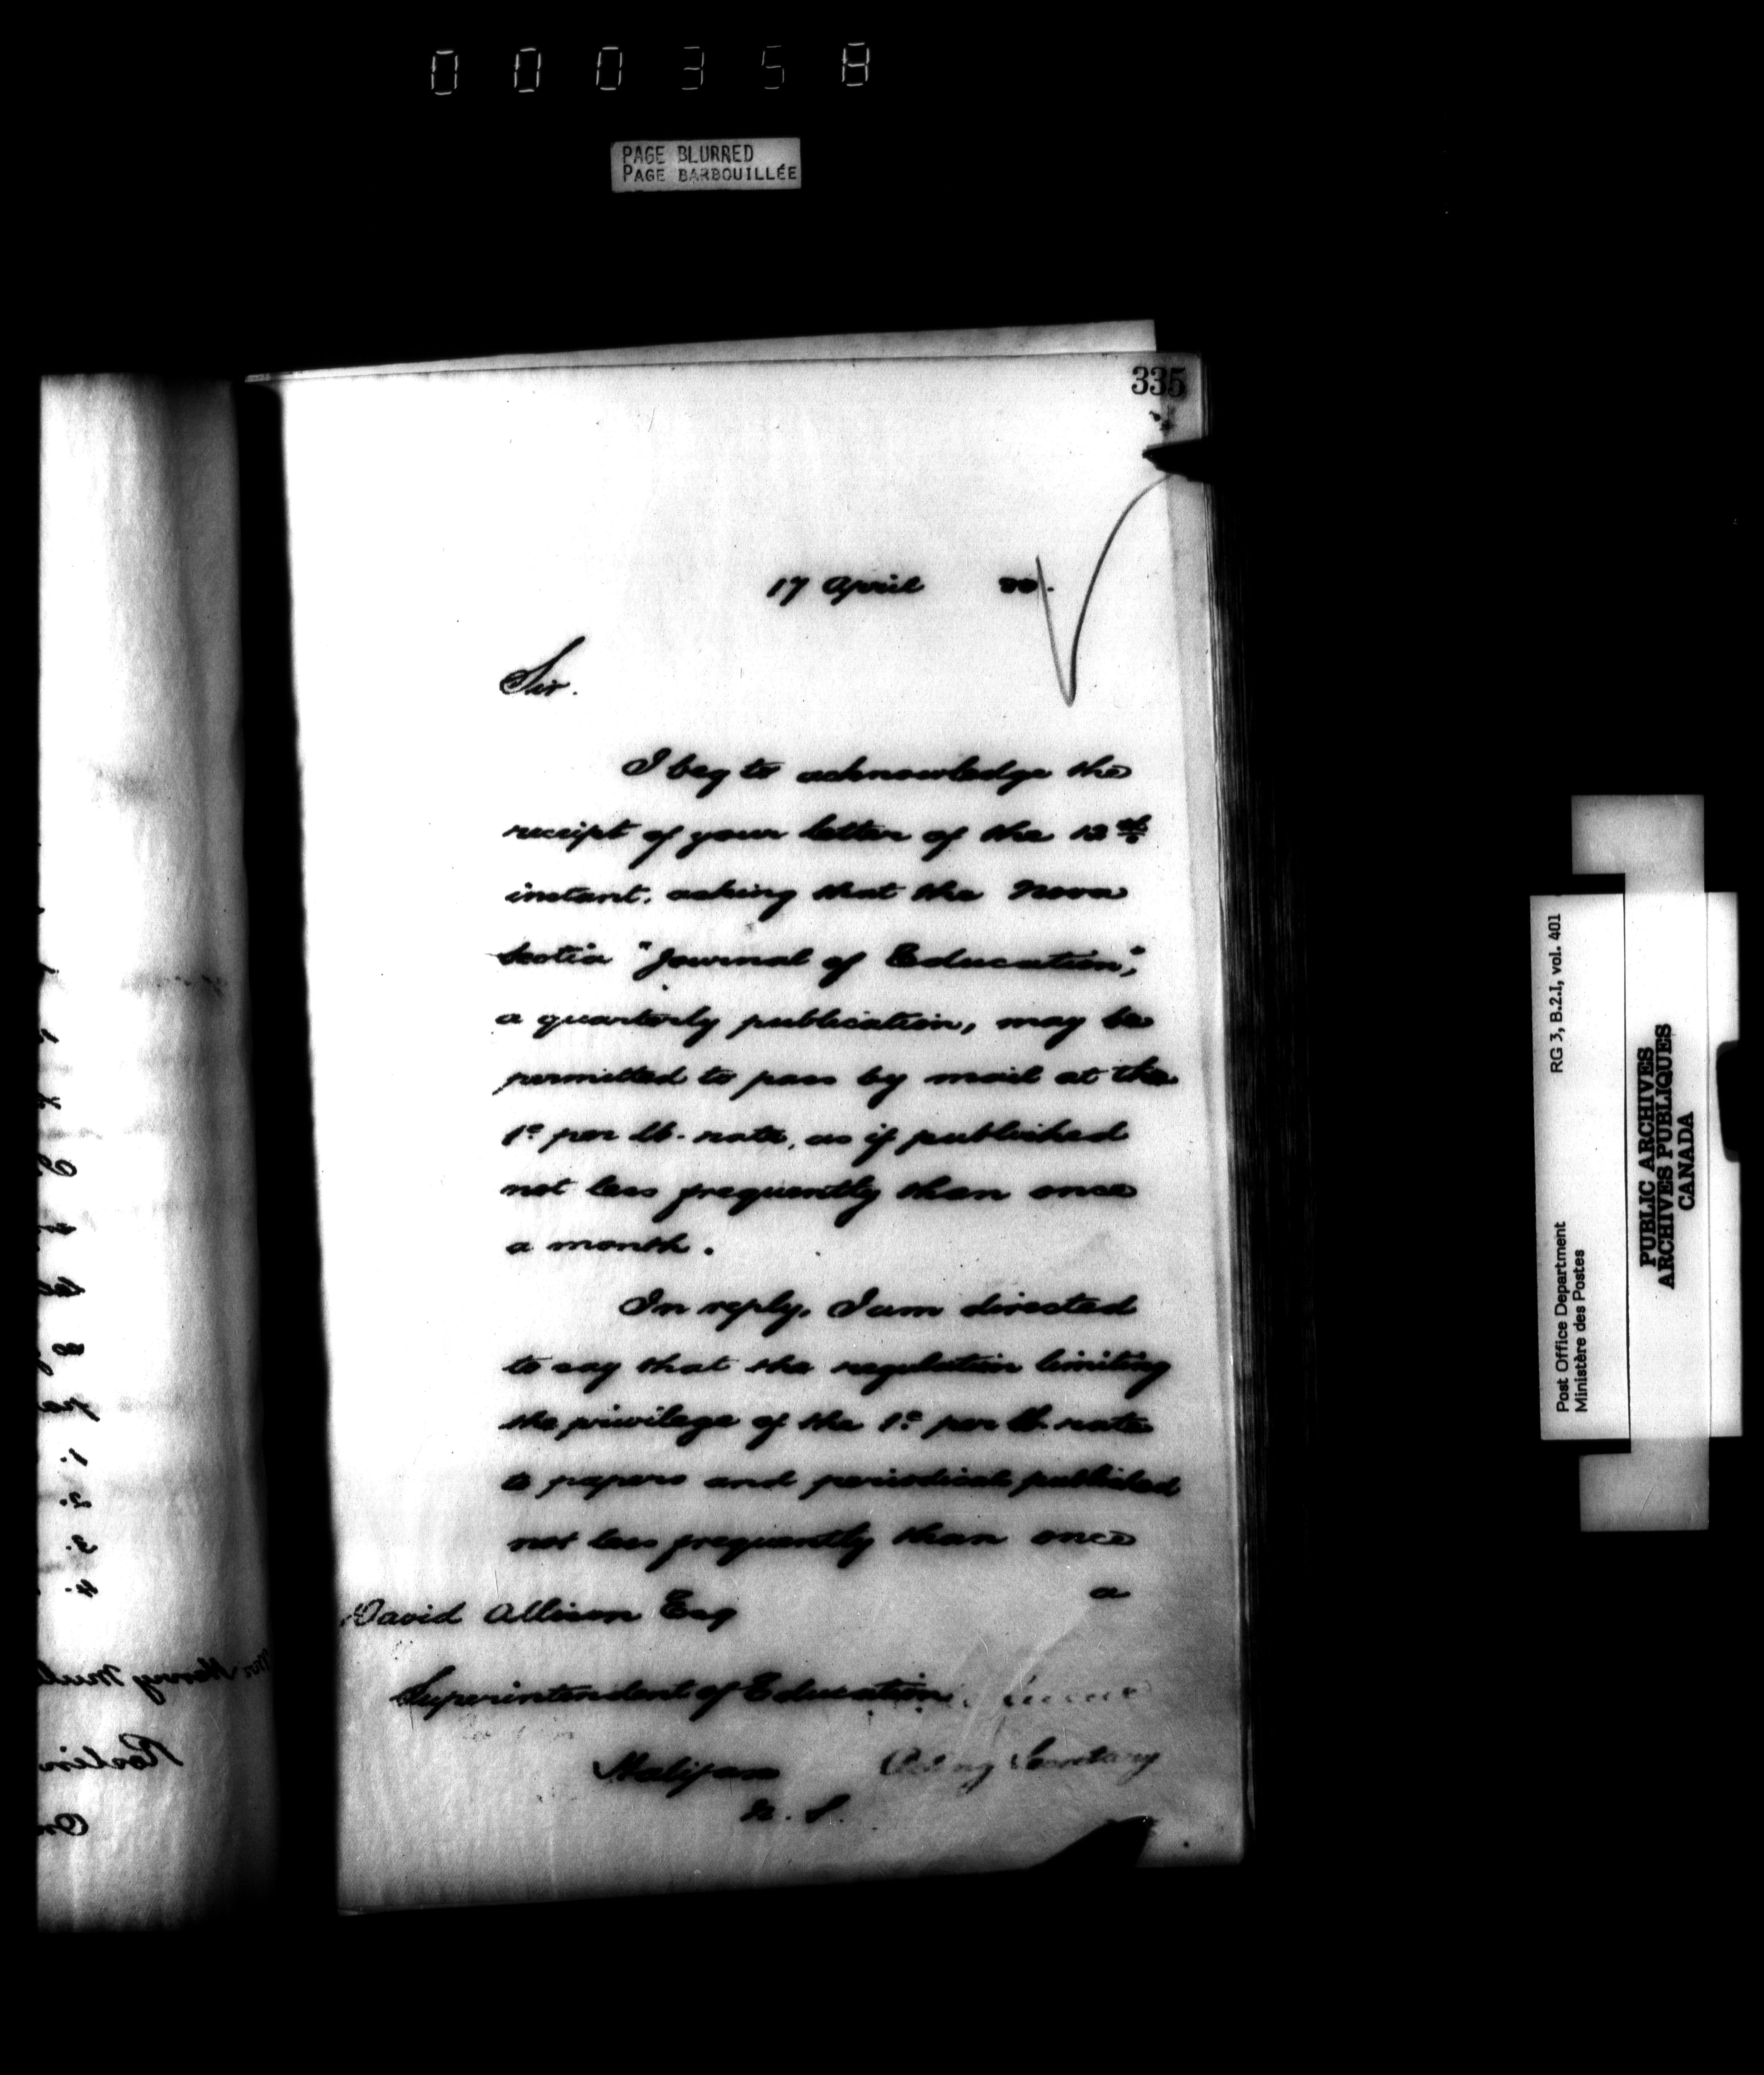 000358
PAGE BLURRED
PAGE BARBOUILLÉE
335
17 April 80.
Sir.
I beg to acknowledge the
receipt of your letter of the 12th
instant, asking that the Nova
Scotia "Journal of Education",
a quarterly publication, may be
permitted to pass by mail at the
1c per lb. rate, as if published
not less frequently than once
a month.
In reply, I am directed
to say that the regulation limiting
the privilege of the 1c per lb. rate
to papers and periodicals published
not less frequently than once
a
David Allison Esq
Superintendent of Education
Halifax
N. S.
Acting Secretary
Mr Henry
1.
2.
3.
4.
Post Office Department
Ministère des Postes
RG 3, B.2.1, vol. 401
PUBLIC ARCHIVES
ARCHIVES PUBLIQUES
CANADA